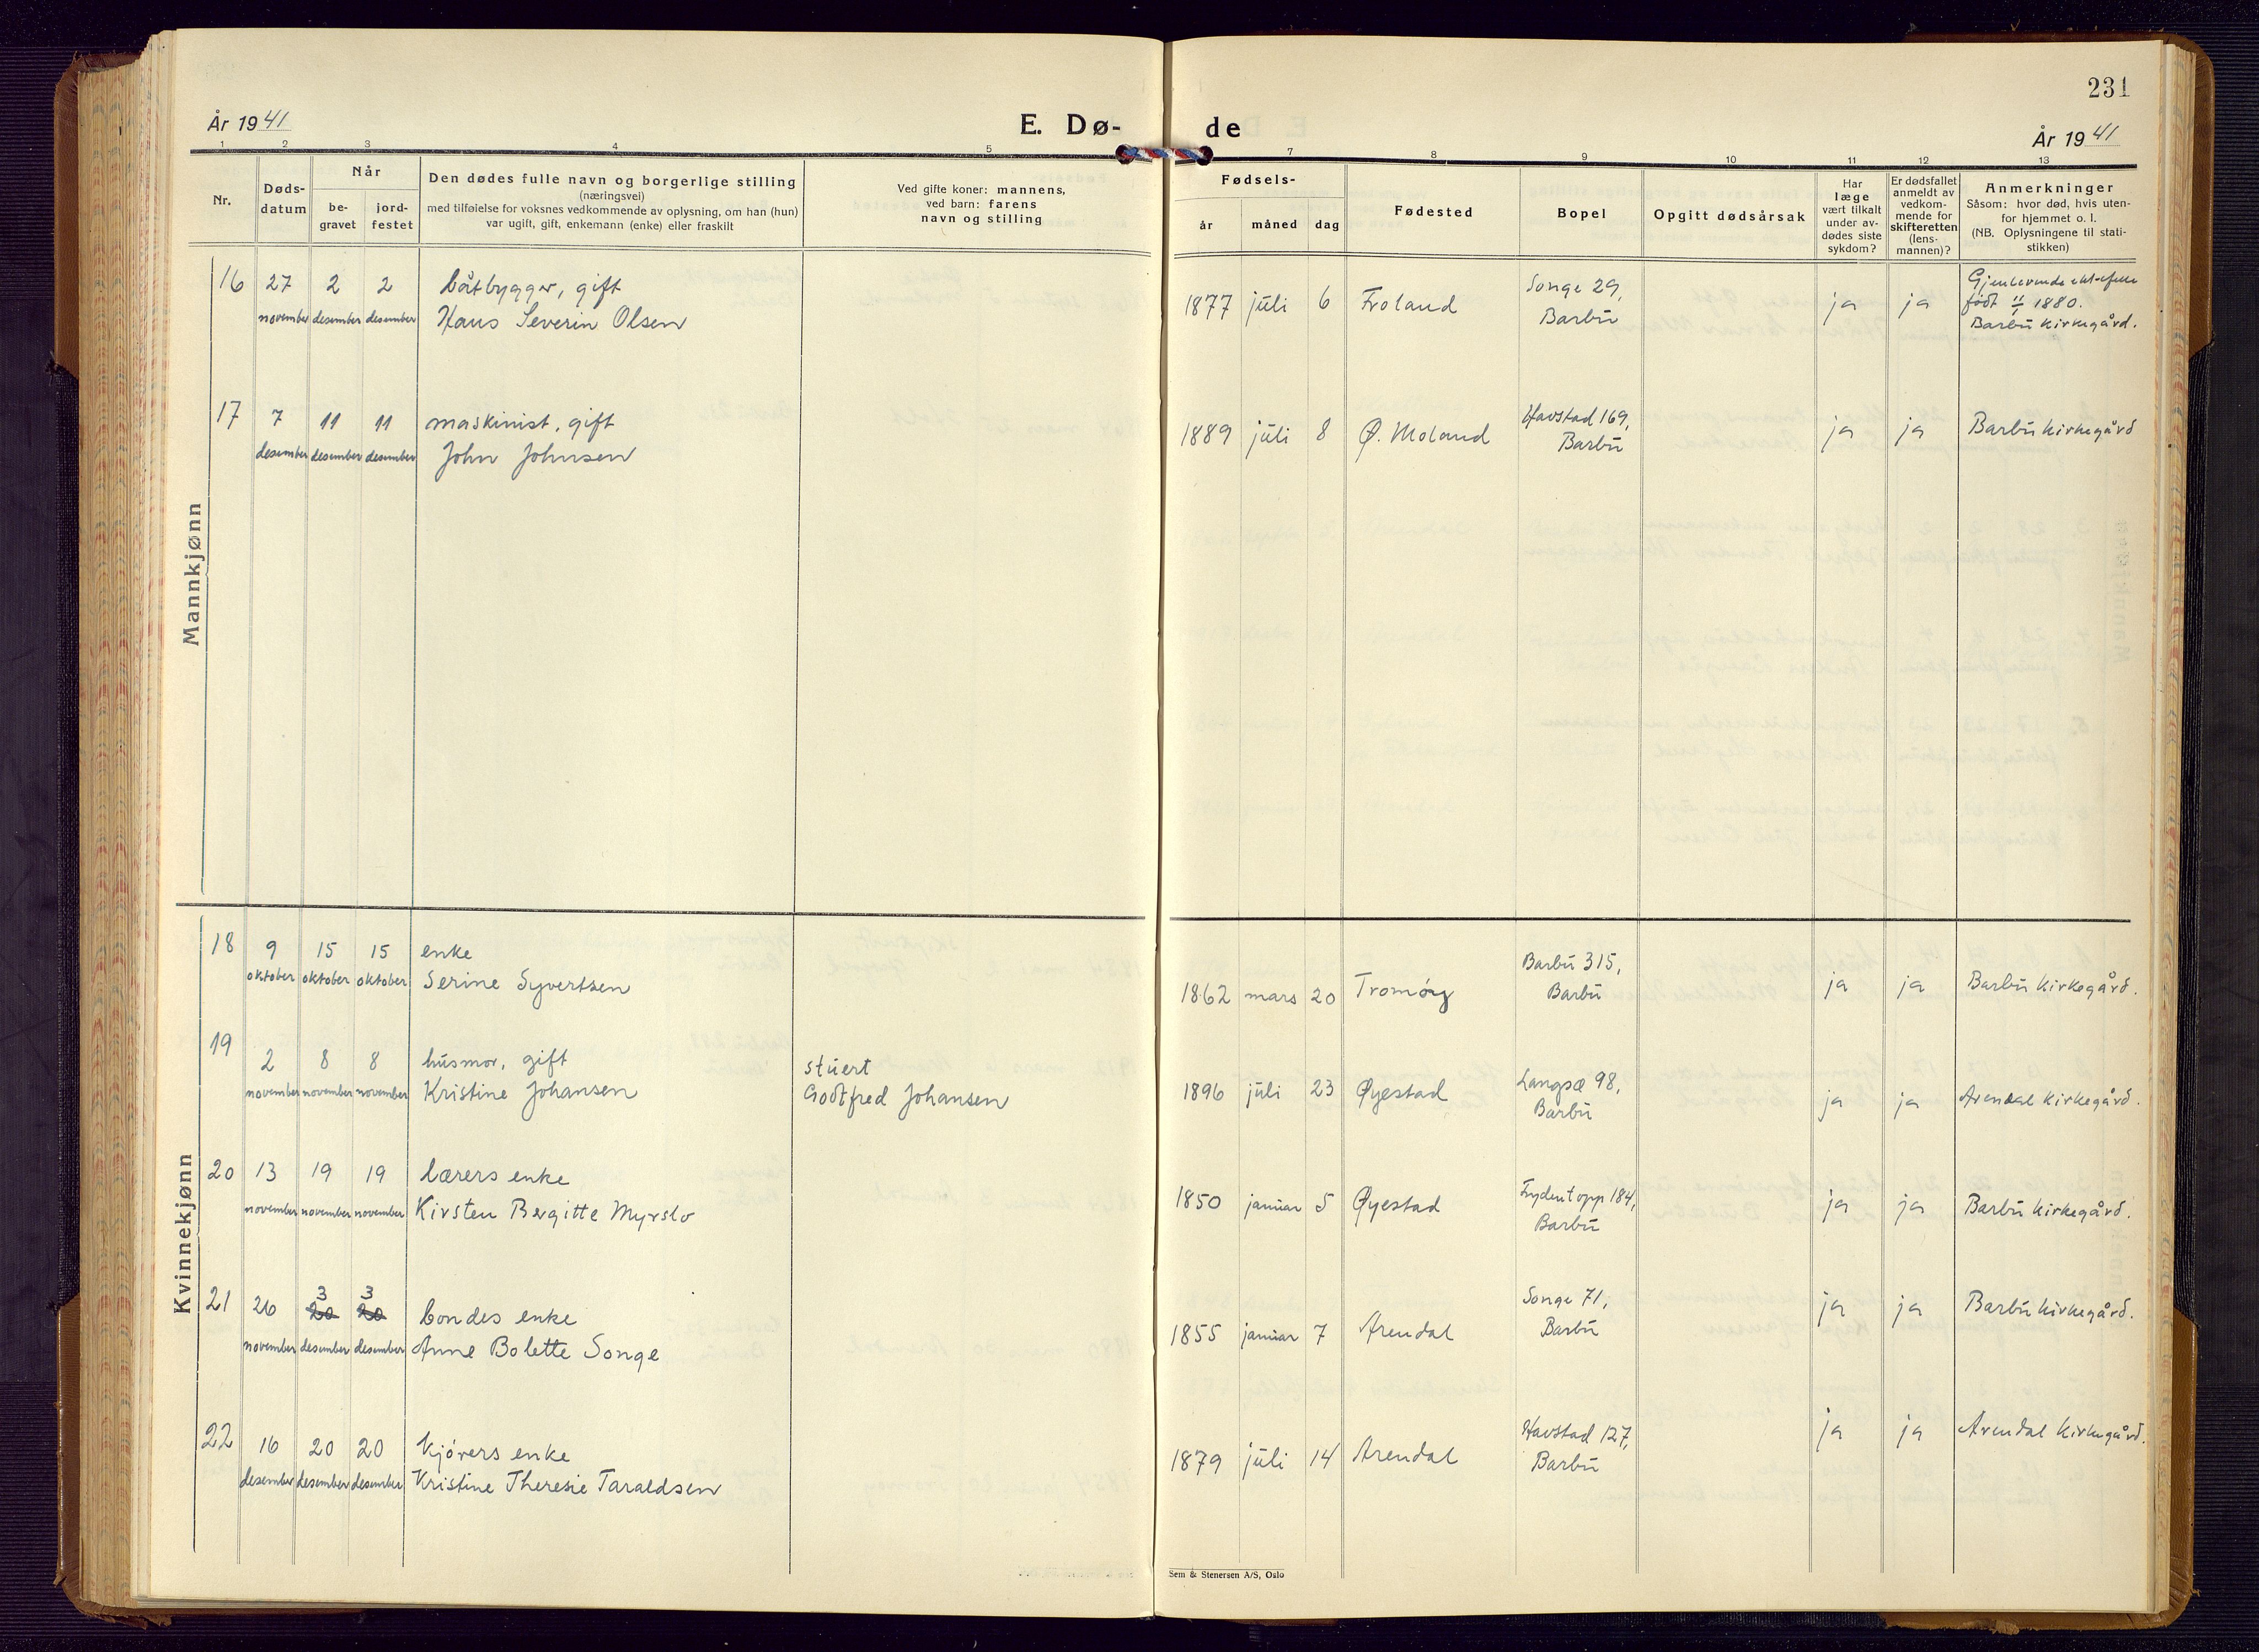 231
År 1941
E. Dø-
de
År 1941
1 2 3 4 5 7 8 9 10 11 12 13
Nr.
Døds-
datum
Når
be-
gravet
jord-
festet
Den dødes fulle navn og borgerlige stilling
(næringsvei)
med tilføielse for voksnes vedkommende av oplysning, om han (hun)
var ugift, gift, enkemann (enke) eller fraskilt
Ved gifte koner: mannens,
ved barn: farens
navn og stilling
Fødsels-
år måned dag
Fødested
Bopel
Opgitt dødsårsak
Har
læge
vært tilkalt
under av-
dødes siste
sykdom?
Er dødsfallet
anmeldt av
vedkom-
mende for
skifteretten
(lens-
mannen)?
Anmerkninger
Såsom: hvor død, hvis uten-
for hjemmet o. l.
(NB. Oplysningene til stati-
stikken)
Mannkjønn
16 27 2 2 båtbygger, gift
november desember desember Hans Severin Olsen
1877 juli 6 Froland
Songe 29,
Barbu
ja ja
Gjenlevende
født 11/1 1880.
Barbu kirkegård.
17 7 11 11 maskinist, gift
desember desember desember John Johnsen
1889 juli 8 Ø. Moland
Havstad 169,
Barbu
ja ja Barbu kirkegård
Kvinnekjønn
18 9 15 15 enke
oktober oktober oktober Serine Syvertsen
1862 mars 20 Tromøy
Barbu 315,
Barbu
ja ja Barbu kirkegård.
19 2 8 8 husmor, gift stuert
november november november Kristine Johansen Godtfred Johansen
1896 juli 23 Øyestad
Langsæ 98,
Barbu
ja ja Arendal kirkegård.
20 13 19 19 lærers enke
november november november Kirsten Bergitte Myrslo
1850 januar 5 Øyestad
Frydentopp 184,
Barbu
ja ja Barbu kirkegård.
3 3
21 26 20 20 bondes enke
november desember desember Anne Bolette Songe
1855 januar 7 Arendal
Songe 71,
Barbu
ja ja Barbu kirkegård.
22 16 20 20 kjørers enke
desember desember desember Kristine Theresie Taraldsen
1879 juli 14 Arendal
Havstad 127,
Barbu
ja ja Arendal kirkegård.
Sem & Stenersen A/S, Oslo